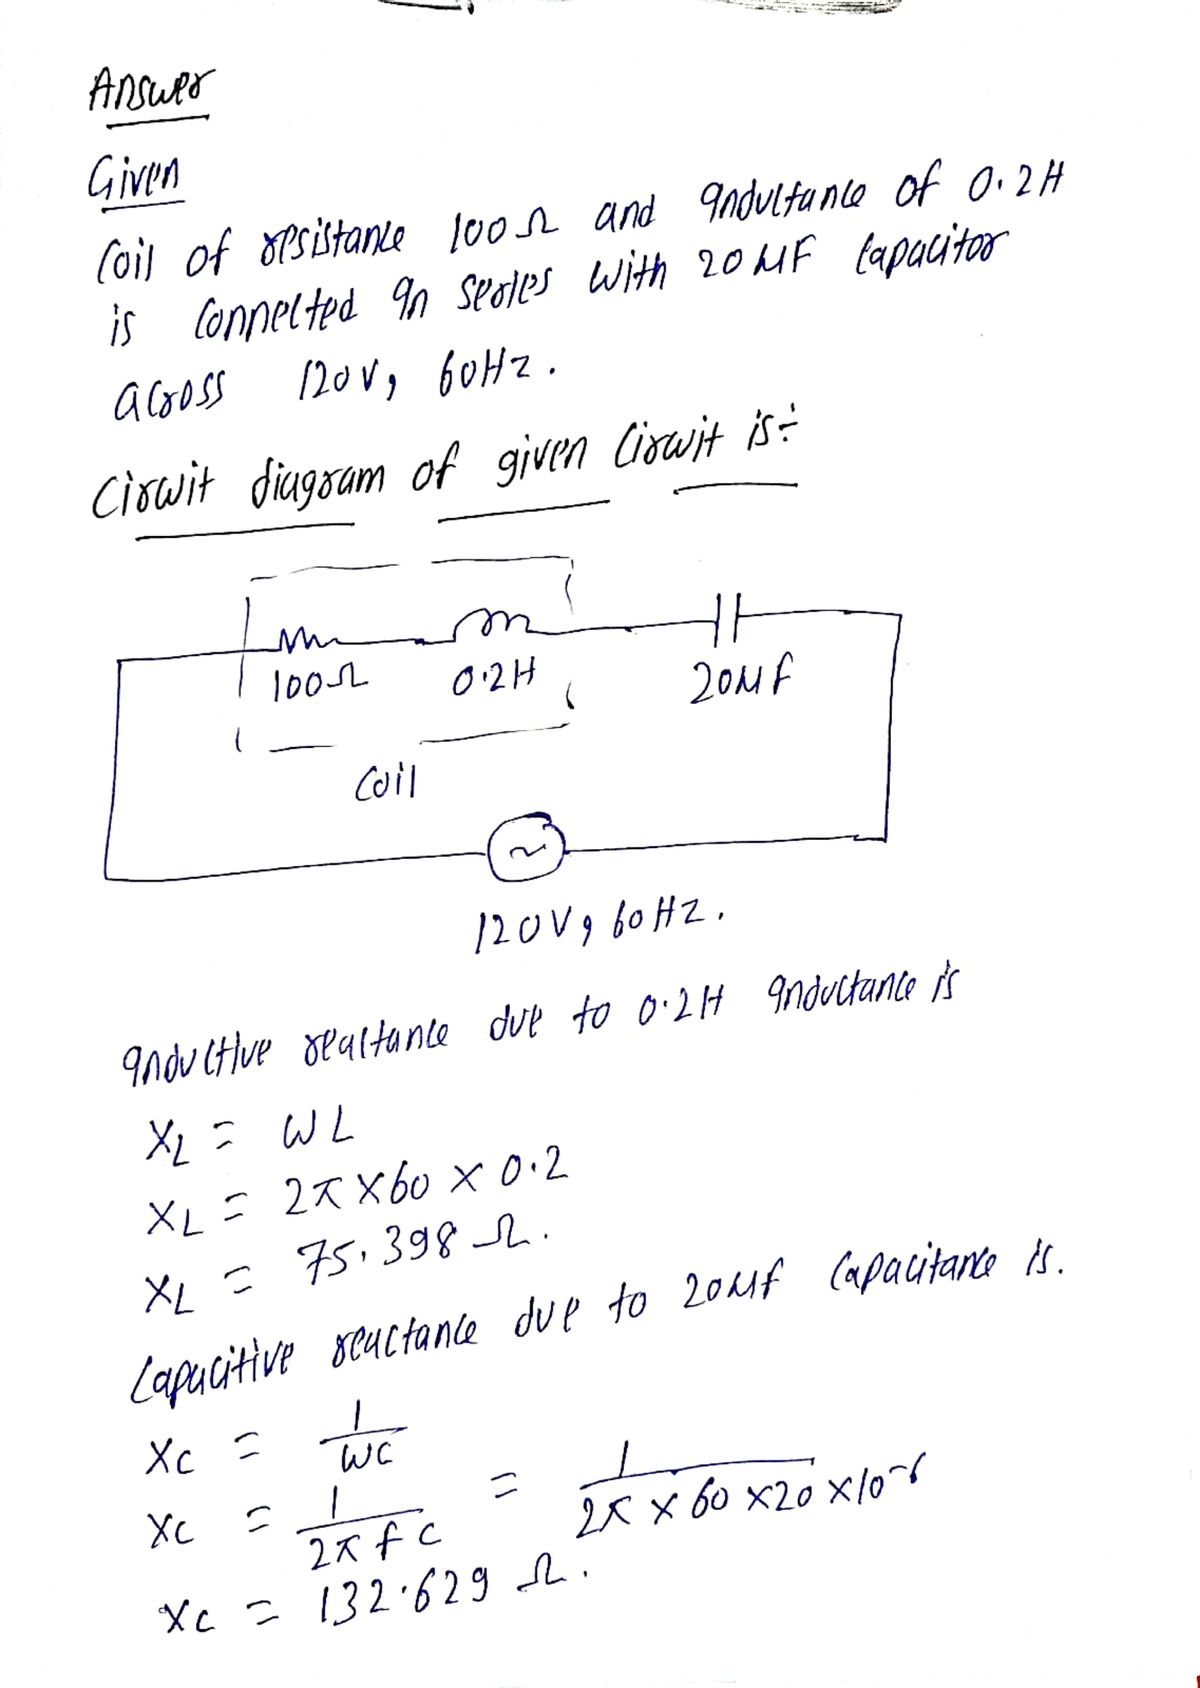 Answer
Given
Coil of resistance 100Ω and inductance of 0.2H
is connected in series with 20μF capacitor
across 120V, 60Hz.
Circuit diagram of given circuit is÷
100Ω 0.2H 20μF
Coil
~
120V, 60HZ.
inductive reactance due to 0.2H inductance is
XL = WL
XL = 2π×60 × 0.2
XL = 75.398 Ω.
Capacitive reactance due to 20μf capacitance is.
Xc = 1/WC
Xc = 1/2πfc = 1/2π × 60 ×20 ×10^-6
Xc = 132.629 Ω.